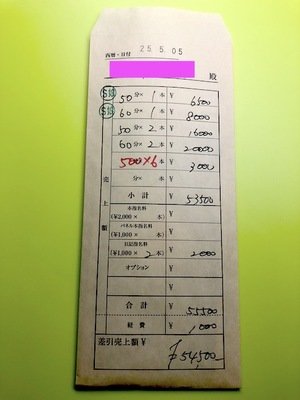 西暦・日付 25.5.05
殿
S嬢 50分× 1本 ¥ 6500
S嬢 60分× 1本 ¥ 8000
50分× 2本 ¥ 16000
60分× 2本 ¥ 20000
500×6本 ¥ 3000
分× 本 ¥
売上額
小計 ¥ 53500
本指名料 (¥2,000× 本) ¥
パネル本指名料 (¥1,000× 本) ¥
日記指名料 (¥1,000× 2本) ¥ 2000
オプション ¥
合計 ¥ 55500
経費 ¥ 1000
差引売上額 ¥ 54,500